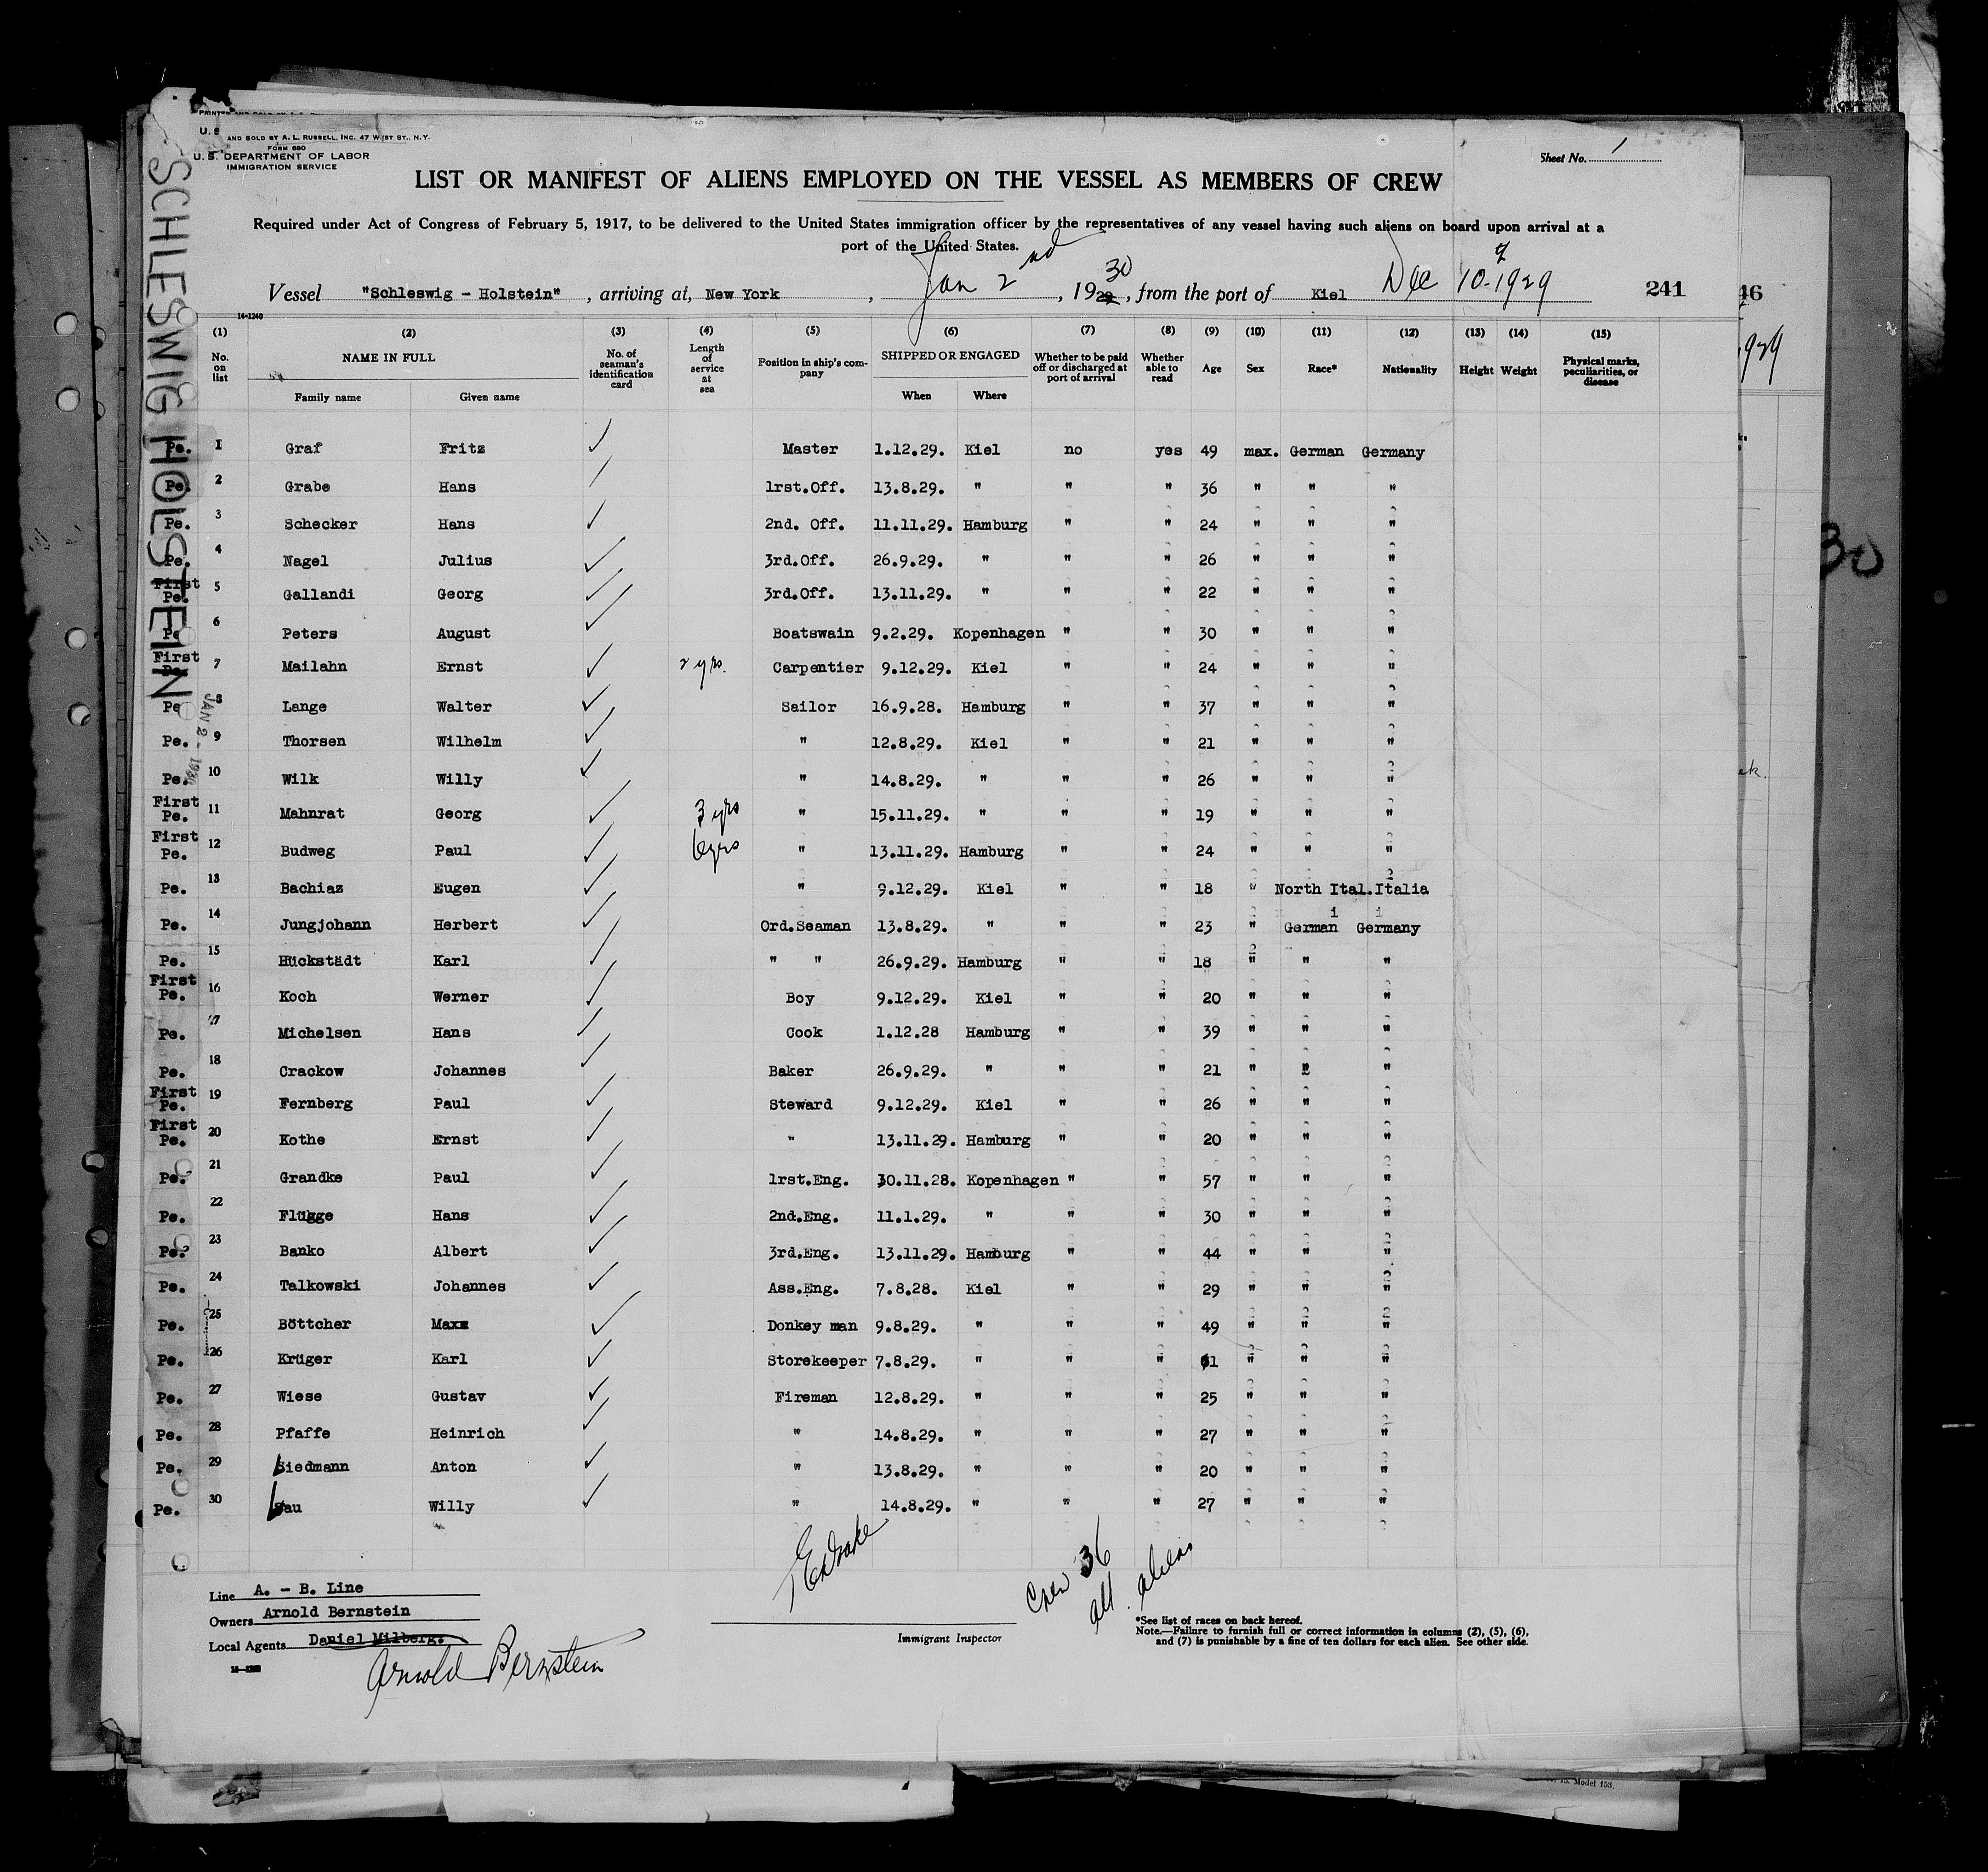 SCHLESWIG HOLSTEIN
JAN 2 - 193
AND SOLD BY A. L. RUSSELL, INC. 47 WEST ST., N.Y.
FORM 680
U. S. DEPARTMENT OF LABOR
IMMIGRATION SERVICE
Sheet No. 1
LIST OR MANIFEST OF ALIENS EMPLOYED ON THE VESSEL AS MEMBERS OF CREW
Required under Act of Congress of February 5, 1917, to be delivered to the United States immigration officer by the representatives of any vessel having such aliens on board upon arrival at a
port of the United States.
Vessel "Schleswig - Holstein" , arriving at, New York , Jan 2nd , 1929 30 , from the port of Kiel Dec 10-1929 7 241
46
1929
30
14-1240
(1) (2) (3) (4) (5) (6) (7) (8) (9) (10) (11) (12) (13) (14) (15)
No. on list NAME IN FULL Family name Given name No. of seaman's identification card Length of service at sea Position in ship's company SHIPPED OR ENGAGED When Where Whether to be paid off or discharged at port of arrival Whether able to read Age Sex Race* Nationality Height Weight Physical marks, peculiarities, or disease
Pe. 1 Graf Fritz ✓ Master 1.12.29. Kiel no yes 49 max. German Germany
Pe. 2 Grabe Hans ✓ 1rst.Off. 13.8.29. " " " 36 " " "
Pe. 3 Schecker Hans ✓ 2nd. Off. 11.11.29. Hamburg " " 24 " " "
Pe. 4 Nagel Julius ✓ 3rd.Off. 26.9.29. " " " 26 " " "
First Pe. 5 Gallandi Georg ✓ 3rd.Off. 13.11.29. " " " 22 " " "
Pe 6 Peters August ✓ Boatswain 9.2.29. Kopenhagen " " 30 " " "
First Pe. 7 Mailahn Ernst ✓ 2 yrs. Carpentier 9.12.29. Kiel " " 24 " " "
Pe 8 Lange Walter ✓ Sailor 16.9.28. Hamburg " " 37 " " "
Pe. 9 Thorsen Wilhelm ✓ " 12.8.29. Kiel " " 21 " " "
Pe. 10 Wilk Willy ✓ " 14.8.29. " " " 26 " " "
First Pe. 11 Mahnrat Georg ✓ 3 yrs " 15.11.29. " " " 19 " " "
First Pe. 12 Budweg Paul ✓ 6 yrs " 13.11.29. Hamburg " " 24 " " "
Pe. 13 Bachiaz Eugen ✓ " 9.12.29. Kiel " " 18 " North Ital. Italia
Pe. 14 Jungjohann Herbert ✓ Ord.Seaman 13.8.29. " " " 23 " German Germany
Pe. 15 Hückstädt Karl ✓ " " 26.9.29. Hamburg " " 18 " " "
First Pe. 16 Koch Werner ✓ Boy 9.12.29. Kiel " " 20 " " "
Pe. 17 Michelsen Hans ✓ Cook 1.12.28 Hamburg " " 39 " " "
Pe. 18 Crackow Johannes ✓ Baker 26.9.29. " " " 21 " " "
First Pe. 19 Fernberg Paul ✓ Steward 9.12.29. Kiel " " 26 " " "
First Pe. 20 Kothe Ernst ✓ " 13.11.29. Hamburg " " 20 " " "
Pe. 21 Grandke Paul ✓ 1rst.Eng. 30.11.28. Kopenhagen " " 57 " " "
Pe. 22 Flügge Hans ✓ 2nd.Eng. 11.1.29. " " " 30 " " "
Pe. 23 Banko Albert ✓ 3rd.Eng. 13.11.29. Hamburg " " 44 " " "
Pe. 24 Talkowski Johannes ✓ Ass.Eng. 7.8.28. Kiel " " 29 " " "
Pe. 25 Böttcher Max ✓ Donkey man 9.8.29. " " " 49 " " "
Pe. 26 Krüger Karl ✓ Storekeeper 7.8.29. " " " 61 " " "
Pe. 27 Wiese Gustav ✓ Fireman 12.8.29. " " " 25 " " "
Pe. 28 Pfaffe Heinrich ✓ " 14.8.29. " " " 27 " " "
Pe. 29 Siedmann Anton ✓ " 13.8.29. " " " 20 " " "
Pe. 30 Sau Willy ✓ " 14.8.29. " " " 27 " " "
Crew 36
all aliens
Line A. - B. Line
Owners Arnold Bernstein
Local Agents Daniel Milberg.
Arnold Bernstein
Immigrant Inspector
*See list of races on back hereof.
Note.—Failure to furnish full or correct information in columns (2), (5), (6),
and (7) is punishable by a fine of ten dollars for each alien. See other side.
Model 153.